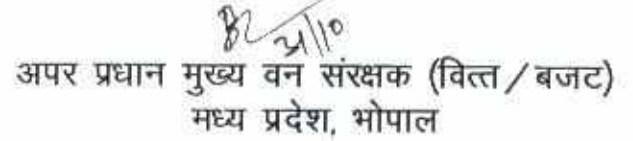 अपर प्रधान मुख्य वन संरक्षक (वित्त/बजट)
मध्य प्रदेश, भोपाल